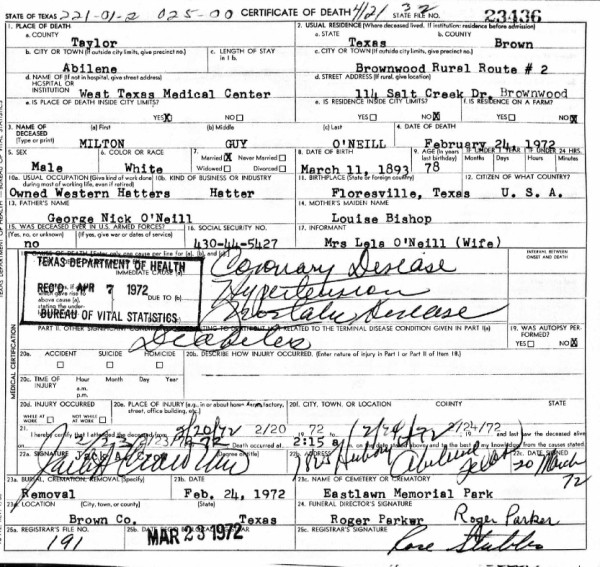 STATE OF TEXAS 221-01-2 025-00 CERTIFICATE OF DEATH 4/21 STATE FILE NO. 23436
1. PLACE OF DEATH 2. USUAL RESIDENCE (Where deceased lived. If institution: residence before admission)
a. COUNTY a. STATE b. COUNTY
Taylor Texas Brown
b. CITY OR TOWN (If outside city limits, give precinct no.) c. LENGTH OF STAY in 1 b. c. CITY OR TOWN (If outside city limits, give precinct no.)
Abilene Brownwood Rural Route # 2
d. NAME OF (If not in hospital, give street address) HOSPITAL OR INSTITUTION d. STREET ADDRESS (If rural, give location)
West Texas Medical Center 114 Salt Creek Dr. Brownwood
e. IS PLACE OF DEATH INSIDE CITY LIMITS? e. IS RESIDENCE INSIDE CITY LIMITS? f. IS RESIDENCE ON A FARM?
YES X NO YES NO X YES NO X
3. NAME OF DECEASED (Type or print) (a) First (b) Middle (c) Last 4. DATE OF DEATH
MILTON GUY O'NEILL February 24, 1972
5. SEX 6. COLOR OR RACE 7. Married X Never Married Widowed Divorced 8. DATE OF BIRTH 9. AGE (In years last birthday) IF UNDER 1 YEAR Months Days IF UNDER 24 HRS. Hours Min.
Male White March 11, 1893 78
10a. USUAL OCCUPATION (Give kind of work done during most of working life, even if retired) 10b. KIND OF BUSINESS OR INDUSTRY 11. BIRTHPLACE (State or foreign country) 12. CITIZEN OF WHAT COUNTRY?
Owned Western Hatters Hatter Floresville, Texas U. S. A.
13. FATHER'S NAME 14. MOTHER'S MAIDEN NAME
George Nick O'Neill Louise Bishop
15. WAS DECEASED EVER IN U.S. ARMED FORCES? (Yes, no, or unknown) (If yes, give war or dates of service) 16. SOCIAL SECURITY NO. 17. INFORMANT
no 430-44-5427 Mrs Lela O'Neill (Wife)
INTERVAL BETWEEN ONSET AND DEATH
TEXAS DEPARTMENT OF HEALTH
REC'D APR 7 1972
BUREAU OF VITAL STATISTICS
DUE TO (b)
Coronary Disease
Hypertension
Prostatic Disease
PART II. OTHER SIGNIFICANT RELATED TO THE TERMINAL DISEASE CONDITION GIVEN IN PART I(a) 19. WAS AUTOPSY PERFORMED?
Diabetes YES NO X
MEDICAL CERTIFICATION
20a. ACCIDENT SUICIDE HOMICIDE 20b. DESCRIBE HOW INJURY OCCURRED. (Enter nature of injury in Part I or Part II of Item 18.)
20c. TIME OF INJURY Hour Month Day Year
a.m.
p.m.
20d. INJURY OCCURRED WHILE AT WORK NOT WHILE AT WORK 20e. PLACE OF INJURY (e.g., in or about home, farm, factory, street, office building, etc.) 20f. CITY, TOWN, OR LOCATION COUNTY STATE
21. I hereby certify that I attended the deceased 2/20/72 2/20 1972 2/24/72 and last saw the deceased alive
Death occurred at 2:15 a on the date stated above, and to the best of my knowledge, from the causes stated.
22a. SIGNATURE (Degree or title) 22b. ADDRESS 22c. DATE SIGNED
Abilene Texas 20 March 72
23a. BURIAL, CREMATION, REMOVAL (Specify) 23b. DATE 23c. NAME OF CEMETERY OR CREMATORY
Removal Feb. 24, 1972 Eastlawn Memorial Park
23d. LOCATION (City, town, or county) (State) 24. FUNERAL DIRECTOR'S SIGNATURE
Brown Co. Texas Roger Parker Roger Parker
25a. REGISTRAR'S FILE NO. 25b. 25c. REGISTRAR'S SIGNATURE
191 MAR 23 1972 Rose Stubbs